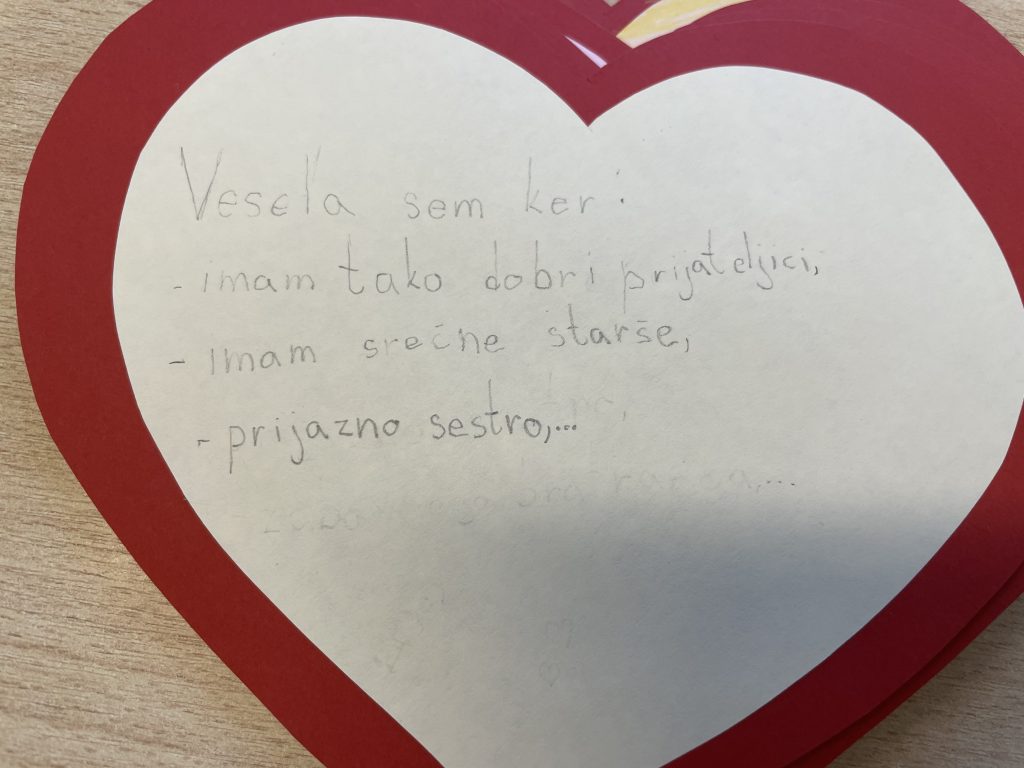 Vesela sem ker:
- imam tako dobri prijateljici,
- imam srečne starše,
- prijazno sestro,...